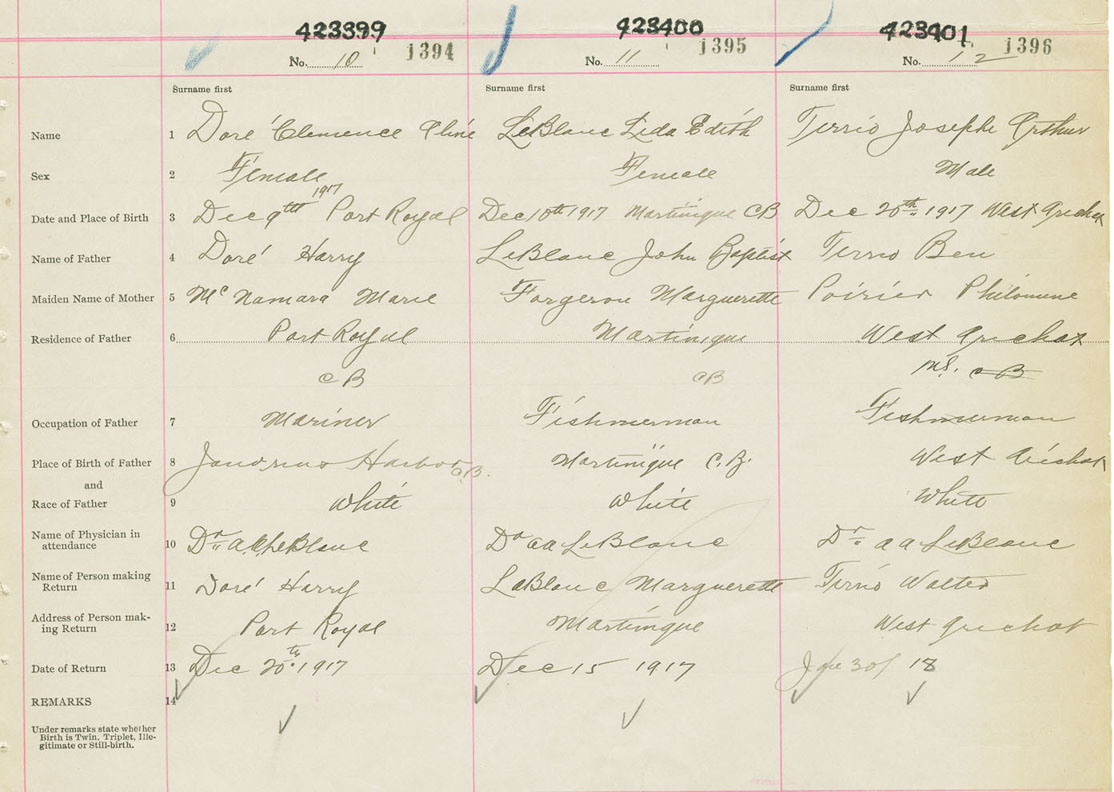 423399 423400 423401
No. 10 1394 No. 11 1395 No. 12 1396
Surname first Surname first Surname first
Name 1 Doré Clemence Cline LeBlanc Lida Edith Terrio Joseph Arthur
Sex 2 Female Female Male
1917
Date and Place of Birth 3 Dec 9th Port Royal Dec 10th 1917 Martinique CB Dec 20th 1917 West Arichat
Name of Father 4 Doré Harry LeBlanc John Baptist Terrio Ben
Maiden Name of Mother 5 Mc Namara Marie Forgeron Marguerette Poirier Philomene
Residence of Father 6 Port Royal Martinique West Arichat
CB CB CB
Occupation of Father 7 Mariner Fishmerman Fishmerman
Place of Birth of Father 8 Harbor C.B. Martinique C.B. West Arichat
and
Race of Father 9 White White White
Name of Physician in
attendance 10 Dr A.A. LeBlanc Dr a a LeBlanc Dr a a LeBlanc
Name of Person making
Return 11 Doré Harry LaBlanc Marguerette Terrio Walter
Address of Person mak-
ing Return 12 Port Royal Martinique West Arichat
Date of Return 13 Dec 20th 1917 Dec 15 1917 30/ 18
REMARKS 14
Under remarks state whether
Birth is Twin. Triplet, Ille-
gitimate or Still-birth.